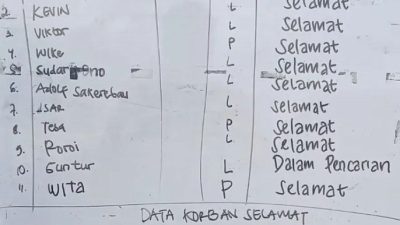 2. KEVIN L Selamat
3. Viktor L Selamat
4. Wike P Selamat
5. Sudarsono L Selamat
6. Adolf Sakerebau L Selamat
7. ISAR L Selamat
8. Tesa P Selamat
9. Roroi L Selamat
10. Guntur L Dalam Pencarian
11. WITA P Selamat
DATA KORBAN SELAMAT